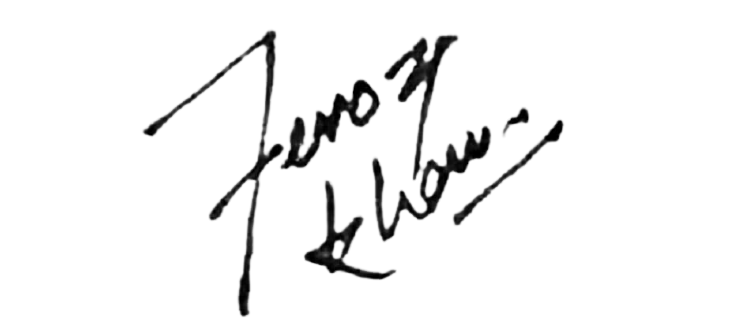 Feroz
Khan.